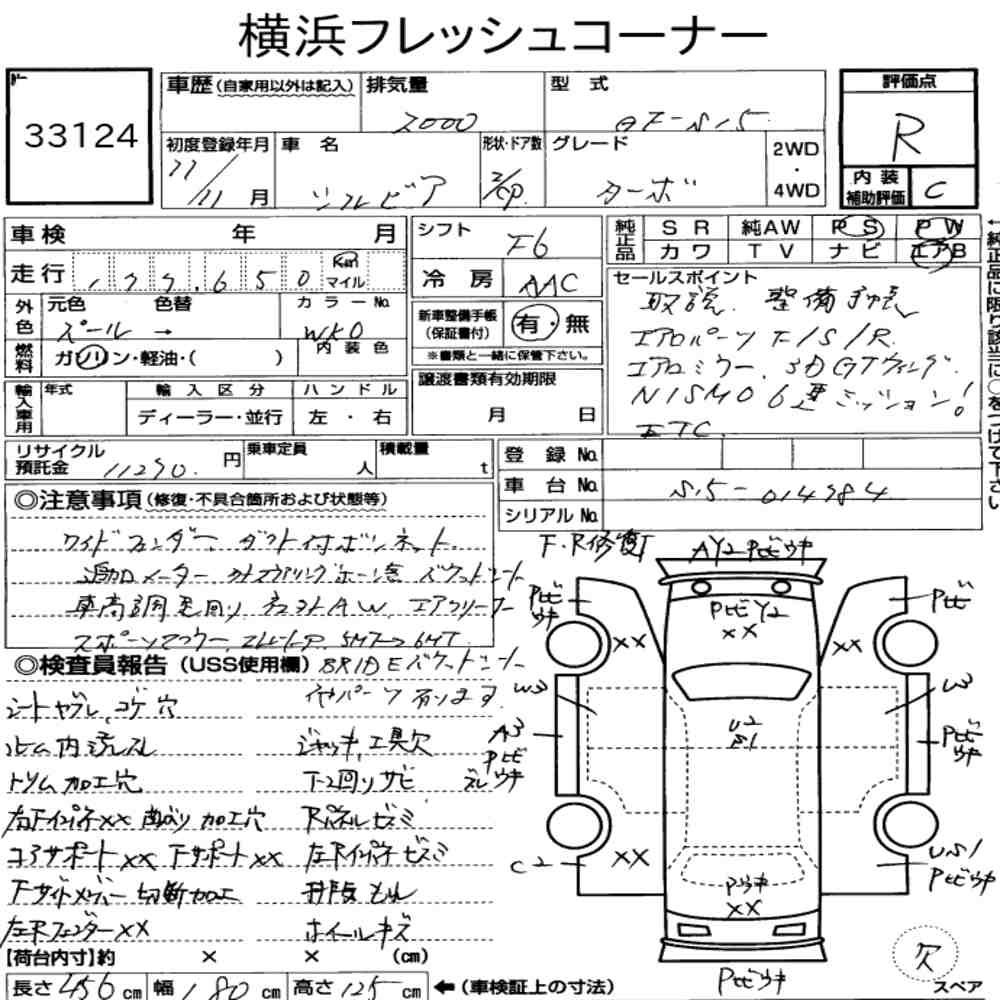 横浜フレッシュコーナー
33124
車歴 (自家用以外は記入)
排気量 2000
型式 GF-S15
評価点 R
初度登録年月 11/11月
車名 シルビア
形状・ドア数 2/CP
グレード ターボ
2WD・4WD
内装補助評価 C
車検 年 月
シフト F6
純正品 SR 純AW PS PW
カワ TV ナビ エアB
走行 177,650 Km マイル
冷房 AAC
セールスポイント
取説 整備手帳
エアロパーツ F/S/R
エアロミラー 3D GTウィング
NISMO 6速ミッション!
ETC
←純正品に限り該当に○をつけて下さい
外色 元色 色替 カラーNo.
パール → WK0
新車整備手帳 (保証書付) 有・無
※書類と一緒に保管下さい。
燃料 ガソリン・軽油・( ) 内装色
輸入車用 年式 輸入区分 ハンドル
ディーラー・並行 左・右
譲渡書類有効期限
月 日
リサイクル預託金 11290. 円
乗車定員 人
積載量 t
登録No.
車台No. S15-014984
シリアルNo.
◎注意事項 (修復・不具合箇所および状態等)
ワイドフェンダー ダクト付ボンネット
追加メーター ステアリング ホーン含 バケットシート
車高調 足回り 社外AW エアクリーナー
スポーツマフラー 5MT→6MT
◎検査員報告 (USS使用欄)
BRIDEバケットシート
シートヤブレ、コゲ穴
パーツ有ります
ルーム内汚れ、スレ
ジャッキ、工具欠
トリム加工穴
下廻りサビ
右Fインパネxx 曲り 加工穴
Rパネルヒズミ
コアサポートxx Fサポートxx
左Rインパネヒズミ
Fサイドメンバー切断加工
左Rフェンダーxx
ホイールキズ
F・R修復
AY2 Pヒビウキ
Pヒビウキ
Pヒビ
PヒビY2
xx
xx
xx
W3
W3
A3
Pヒビウキ
U2
S1
Pヒビウキ
C2
xx
Pウキ
xx
US1
Pヒビウキ
Pヒビウキ
欠
スペア
【荷台内寸】約 × × (cm)
長さ 456 cm 幅 180 cm 高さ 125 cm ←(車検証上の寸法)